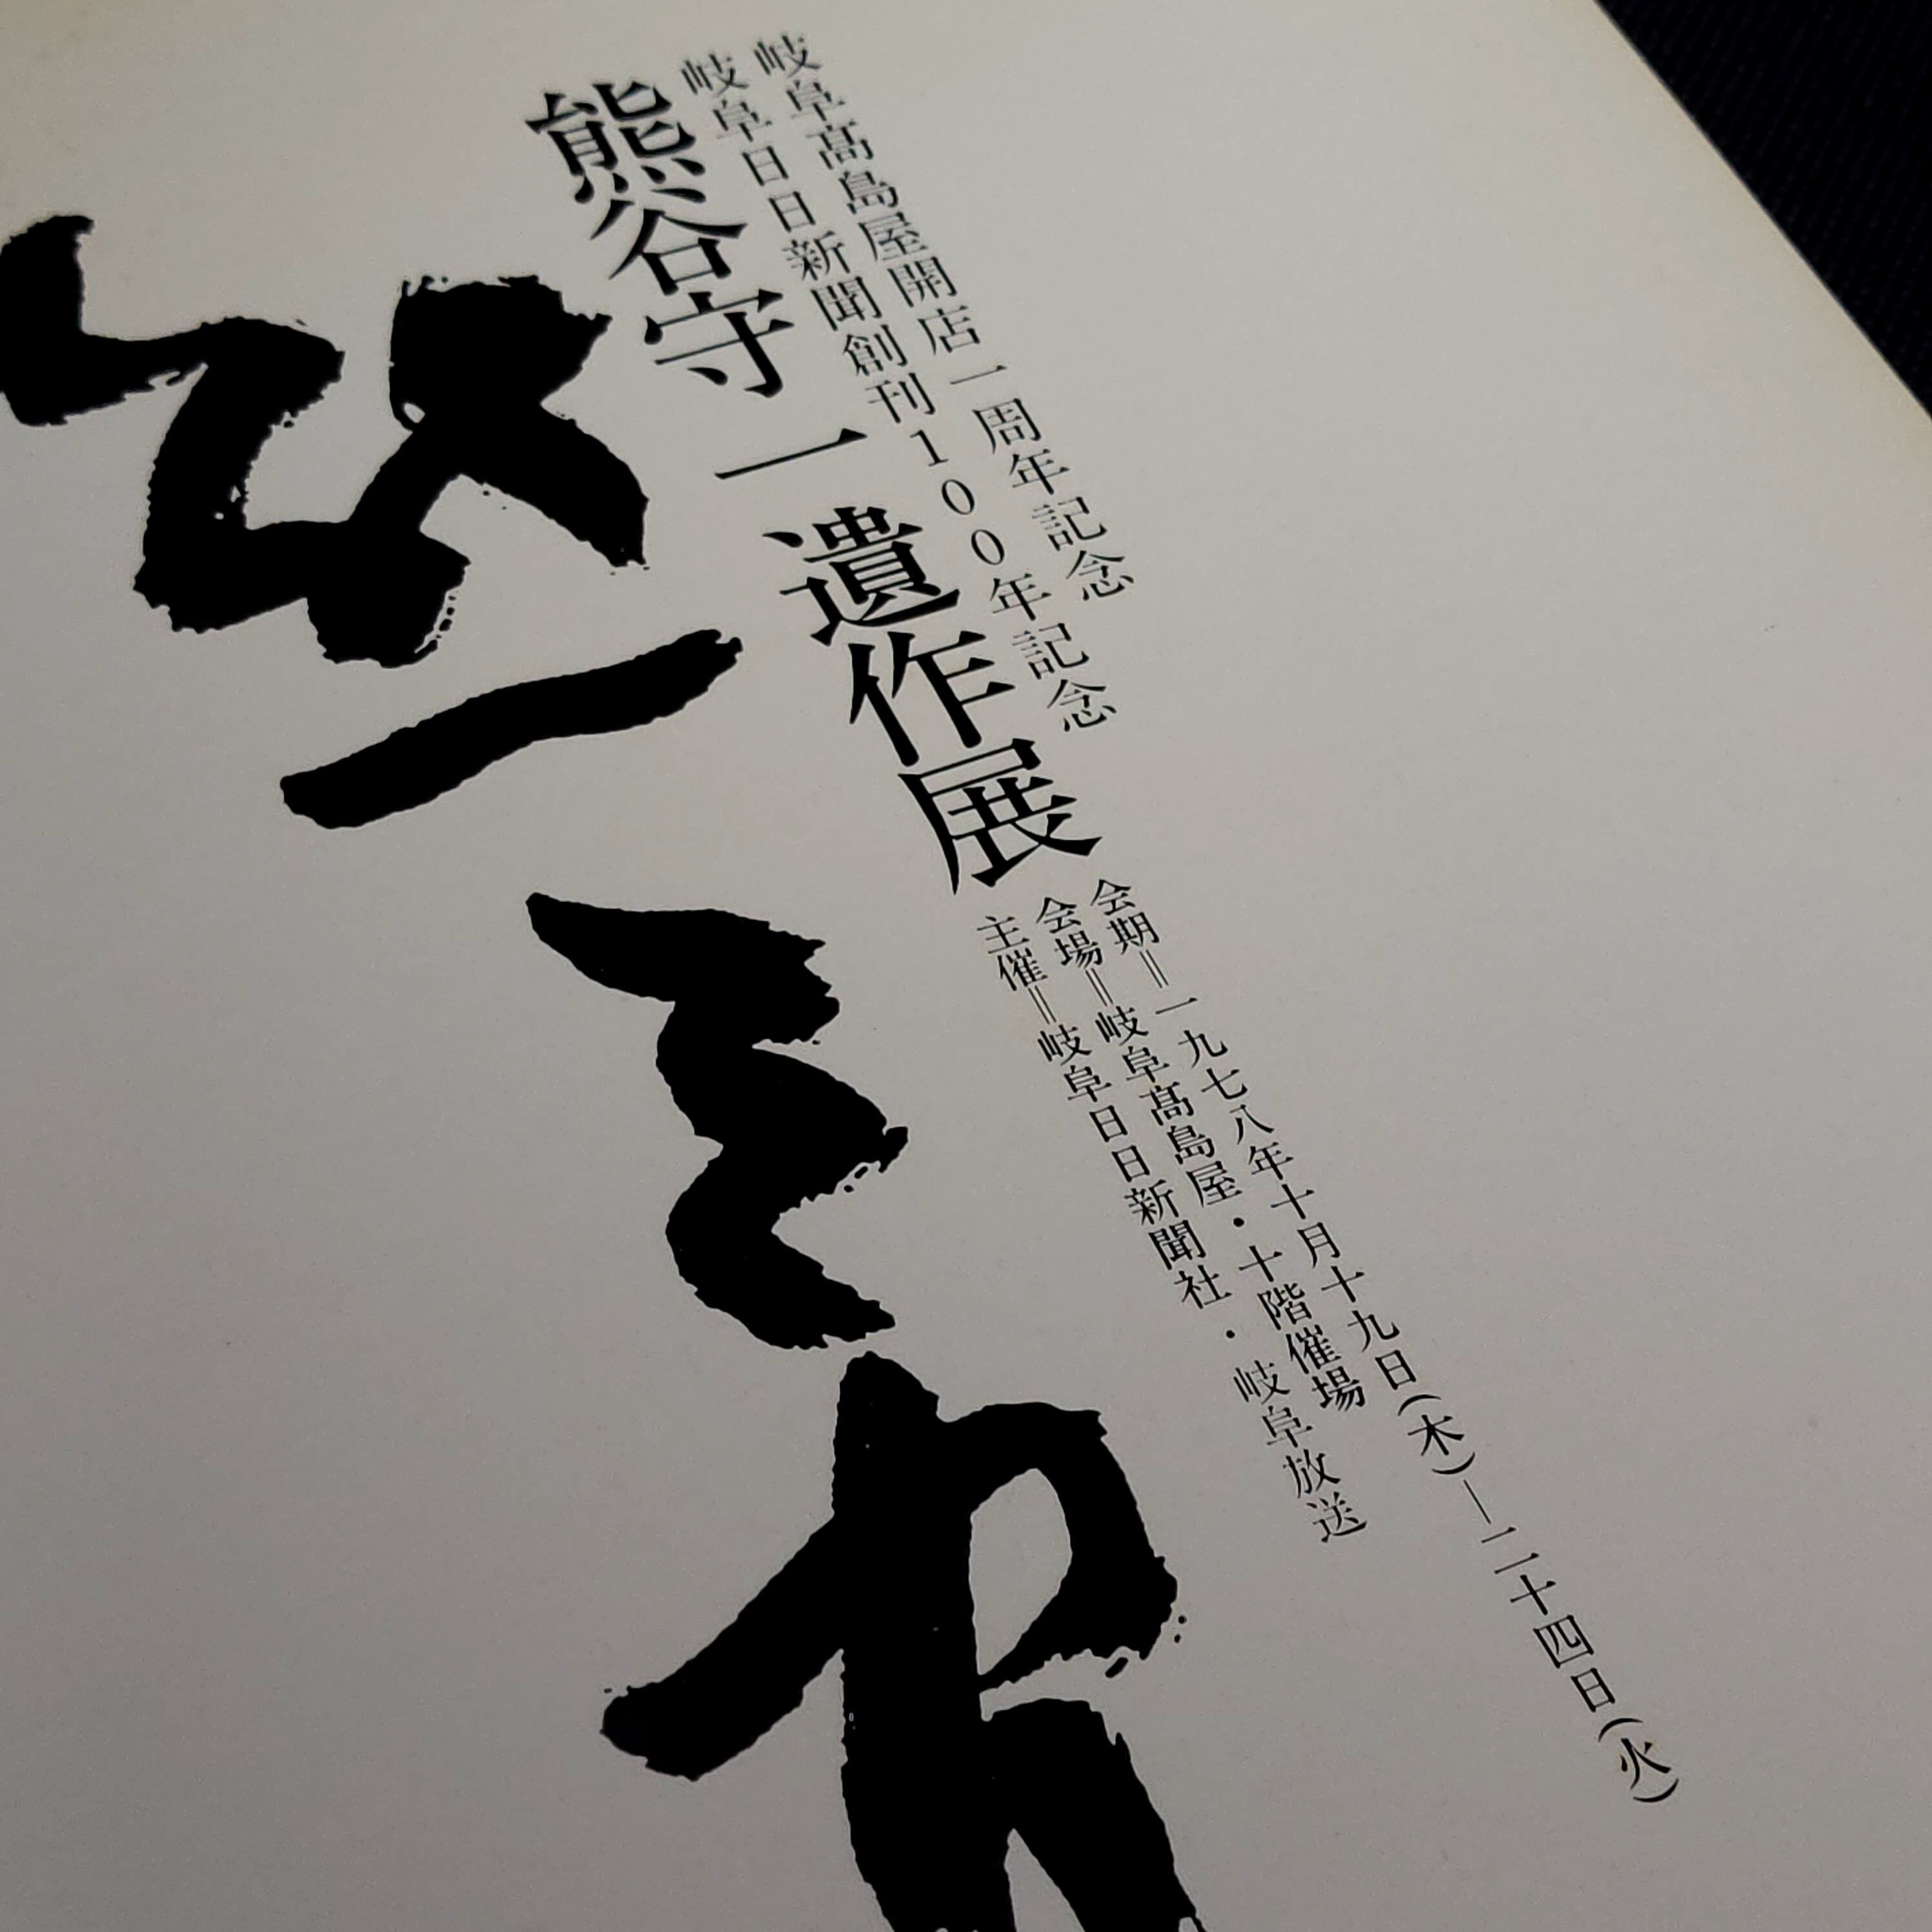 岐阜髙島屋開店一周年記念
岐阜日日新聞創刊100年記念
熊谷守一遺作展
会期=一九七八年十月十九日(木)—二十四日(火)
会場=岐阜髙島屋・十階催場
主催=岐阜日日新聞社・岐阜放送